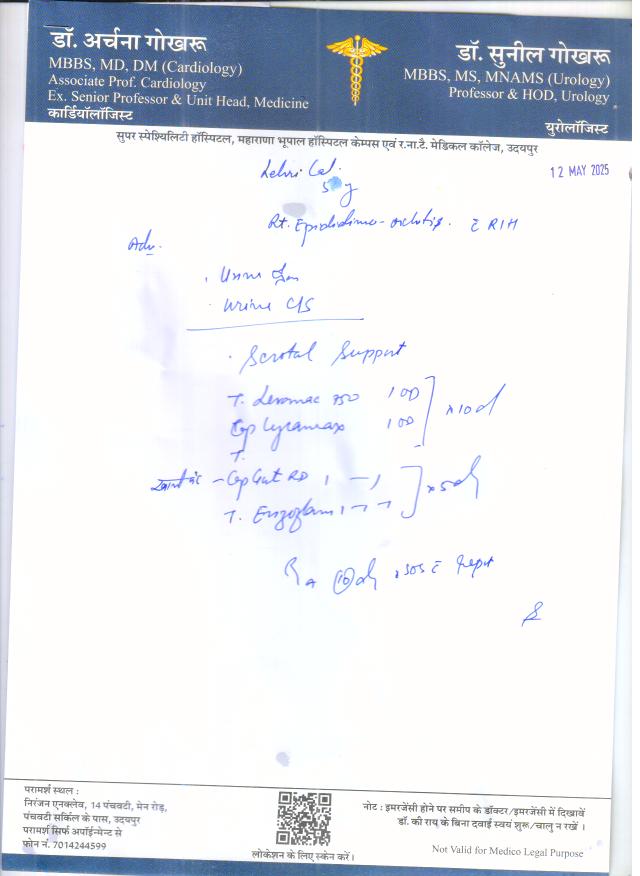 डॉ. अर्चना गोखरू
MBBS, MD, DM (Cardiology)
Associate Prof. Cardiology
Ex. Senior Professor & Unit Head, Medicine
कार्डियॉलॉजिस्ट
डॉ. सुनील गोखरू
MBBS, MS, MNAMS (Urology)
Professor & HOD, Urology
युरोलॉजिस्ट
सुपर स्पेश्यिलिटी हॉस्पिटल, महाराणा भूपाल हॉस्पिटल केम्पस एवं र.ना.टै. मेडिकल कॉलेज, उदयपुर
12 MAY 2025
Rt. Epididimo-orchitis. c RIH
Adv.
Urine
Urine C/S
Scrotal Support
T. Levomac 750 1 OD
Cap Lyramax 1 OD
x 10 d
T.
- Cap Gut RD 1 - 1
T. Enzoflam 1 - 1
x 5 d
SOS c repor
परामर्श स्थल :
निरंजन एनक्लेव, 14 पंचवटी, मेन रोड़,
पंचवटी सर्किल के पास, उदयपुर
परामर्श सिर्फ अपॉईन्मेन्ट से
फोन नं. 7014244599
लोकेशन के लिए स्केन करें।
नोट : इमरजेंसी होने पर समीप के डॉक्टर/इमरजेंसी में दिखावें
डॉ. की राय के बिना दवाई स्वयं शुरू/चालु न रखें ।
Not Valid for Medico Legal Purpose